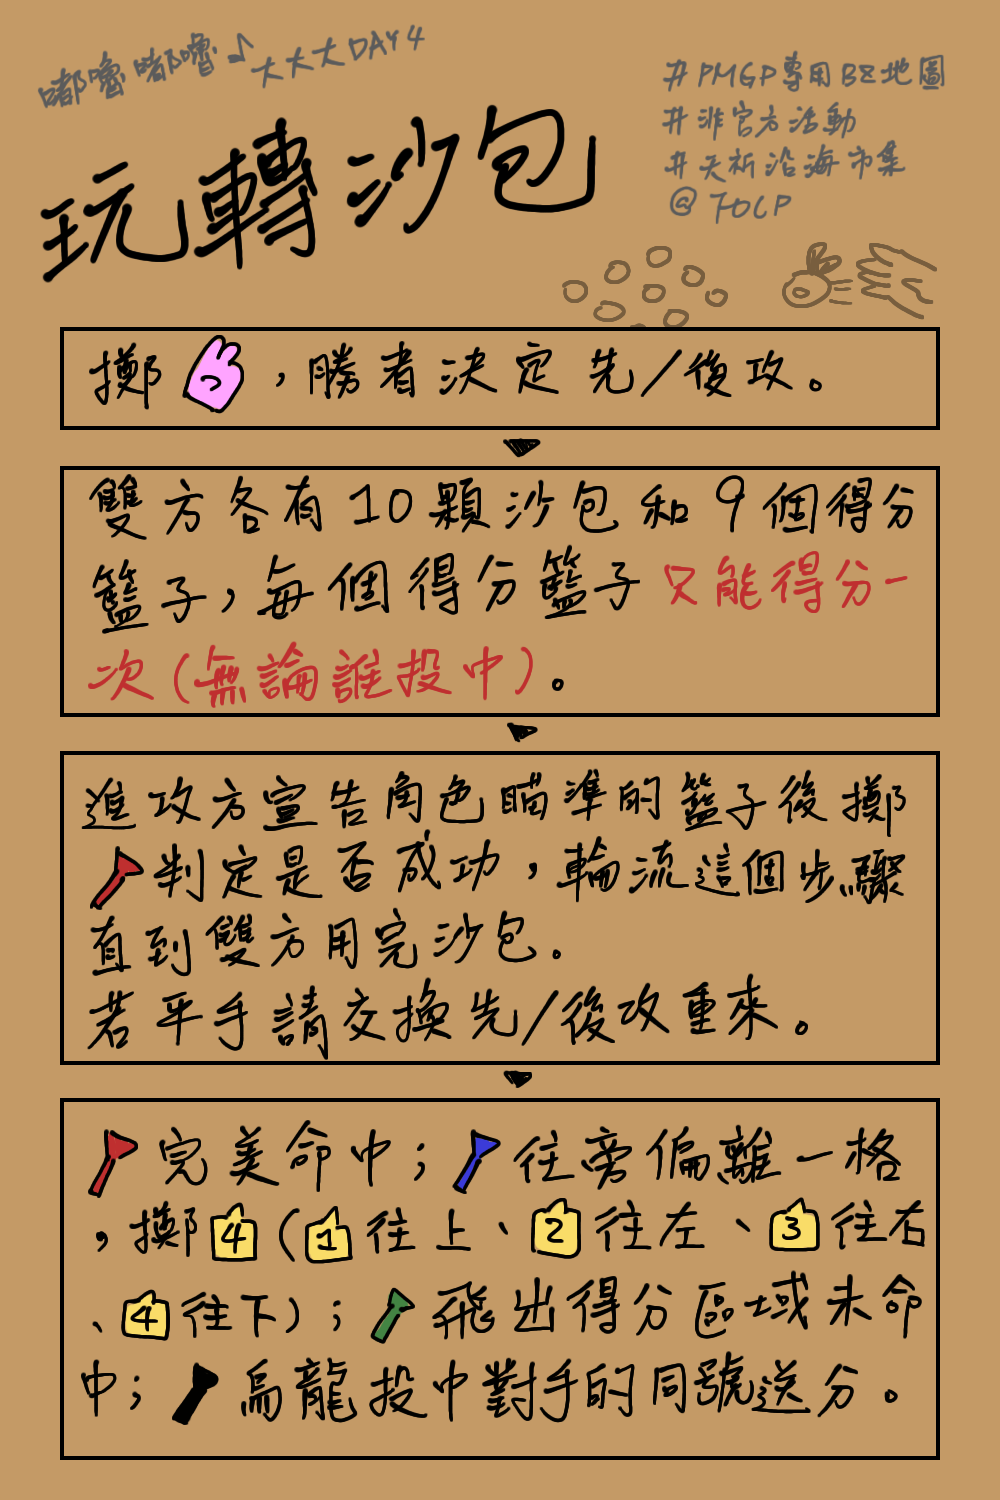 嘟嚕嘟嚕♪大大大DAY4
#PMGP專用BZ地圖
#非官方活動
#天祈沿海市集
@TOCP
玩轉沙包
擲，勝者決定先/後攻。
雙方各有10顆沙包和9個得分
籃子，每個得分籃子只能得分一
次(無論誰投中)。
進攻方宣告角色瞄準的籃子後擲
判定是否成功，輪流這個步驟
直到雙方用完沙包。
若平手請交換先/後攻重來。
完美命中；往旁偏離一格
，擲4(1往上、2往左、3往右
、4往下)；飛出得分區域未命
中；烏龍投中對手的同號送分。